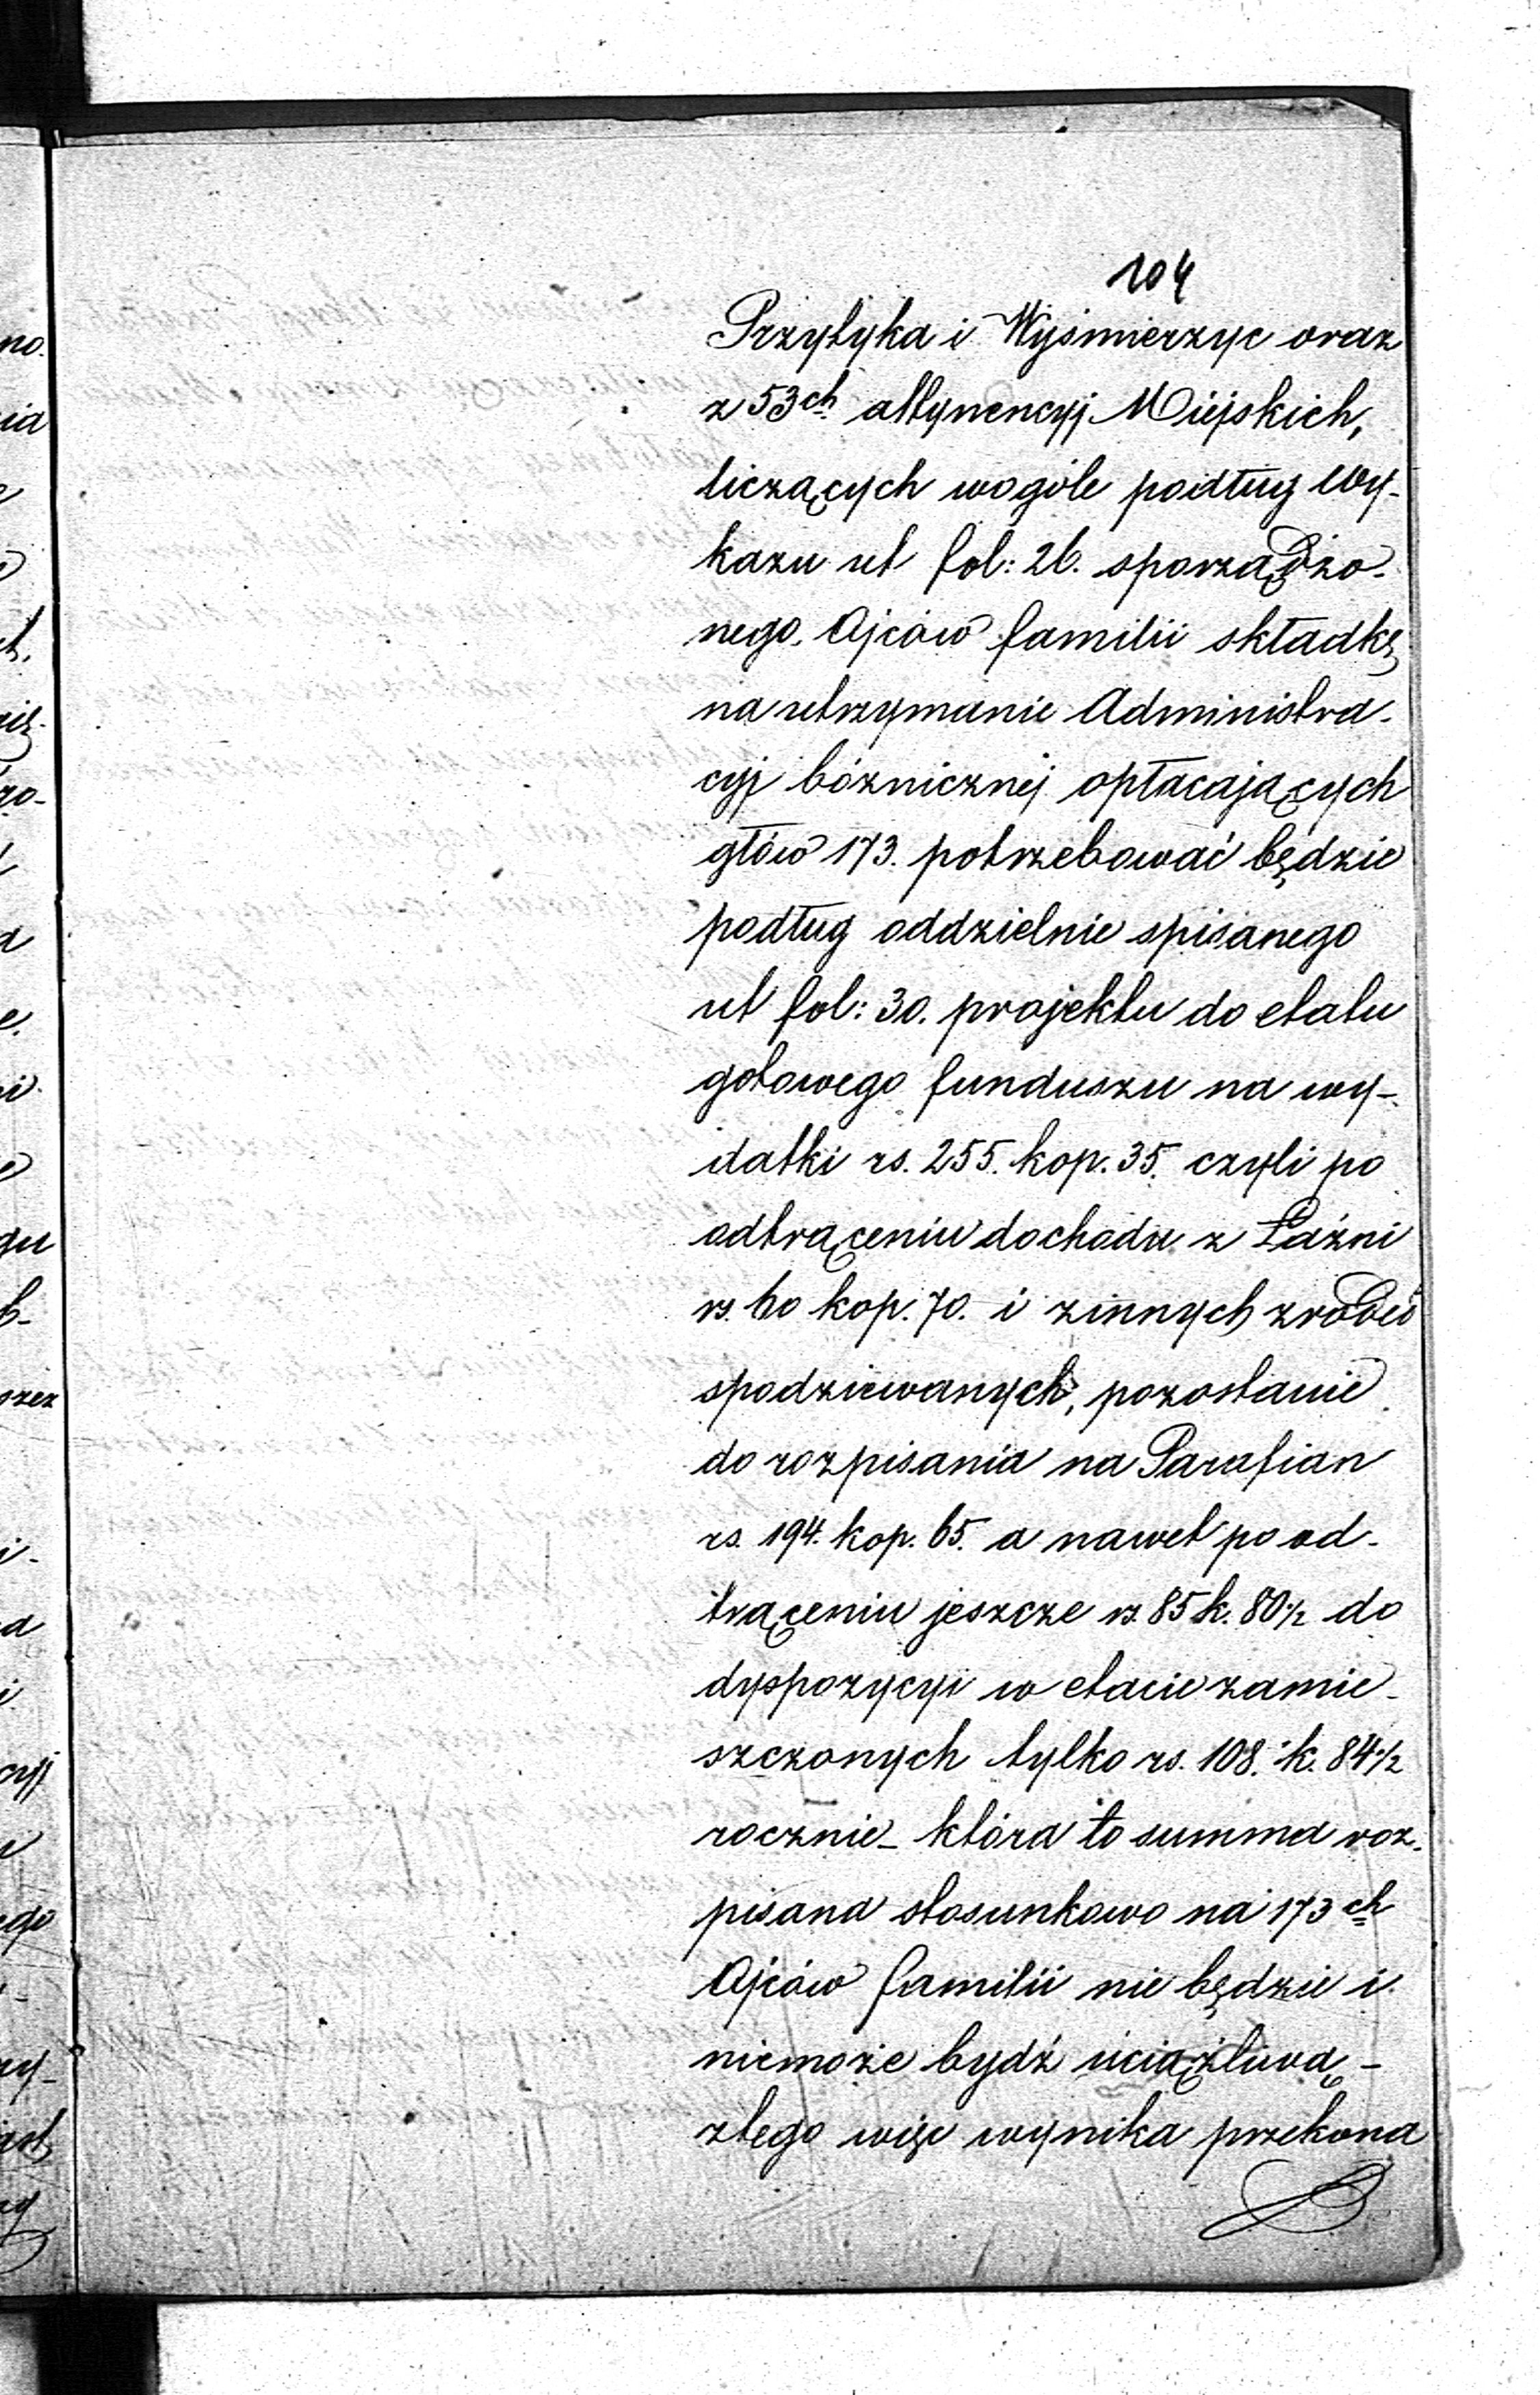 104
Przytyka i Wyśmierzyc oraz
z 53ch attynencyj Miejskich,
liczących wogóle podług wy-
kazu ut fol: 26. sporządzo-
nego. Ojców familii składkę
na utrzymanie Administra-
cyi bóżnicznéj opłacających
głów 173. potrzebować będzie
podług oddzielnie spisanego
ut fol: 30. projektu do etatu
gotowego funduszu na wy-
datki rs. 255. kop. 35. czyli po
odtrąceniu dochodu z Łaźni
rs. 60 kop. 70. i zinnych zrodeł
spodziewanych, pozostanie
do rozpisania na Parafian
rs. 194. kop. 65. a nawet po od-
trąceniu jeszcze rs. 85 k. 80½ do
dyspozycyi w etacie zamie-
szczonych tylko rs. 108. k. 84½
rocznie – która to summa roz-
pisana stosunkowo na 173ch
Ojców familii nie będzie i
niemoże bydź uciążliwą –
ztego więc wynika przekona
no.
ia
gu
szez
cyj
ego